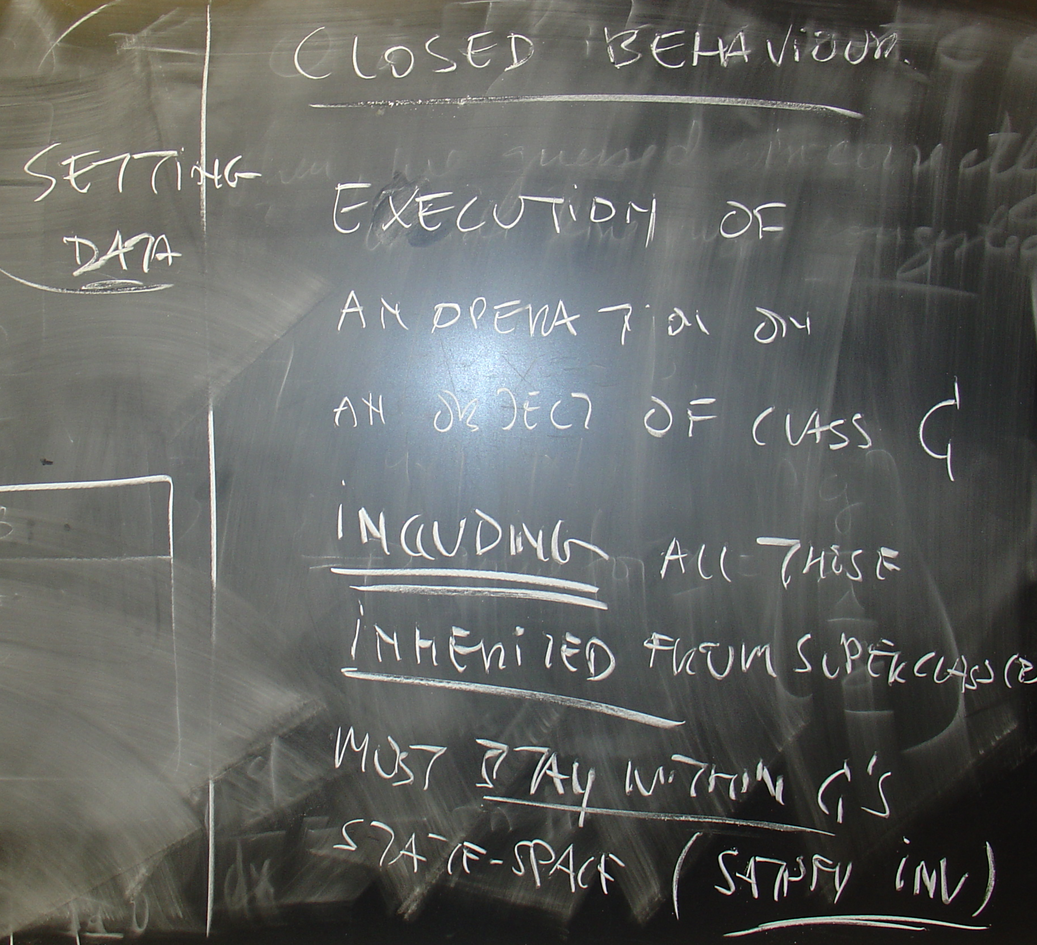 SETTING
DATA
CLOSED BEHAVIOUR
EXECUTION OF
AN OPERATION ON
AN OBJECT OF CLASS C
INCLUDING ALL THOSE
INHERITED FROM SUPERCLASS(ES
MUST STAY WITHIN C'S
STATE-SPACE (SATISFY INV)